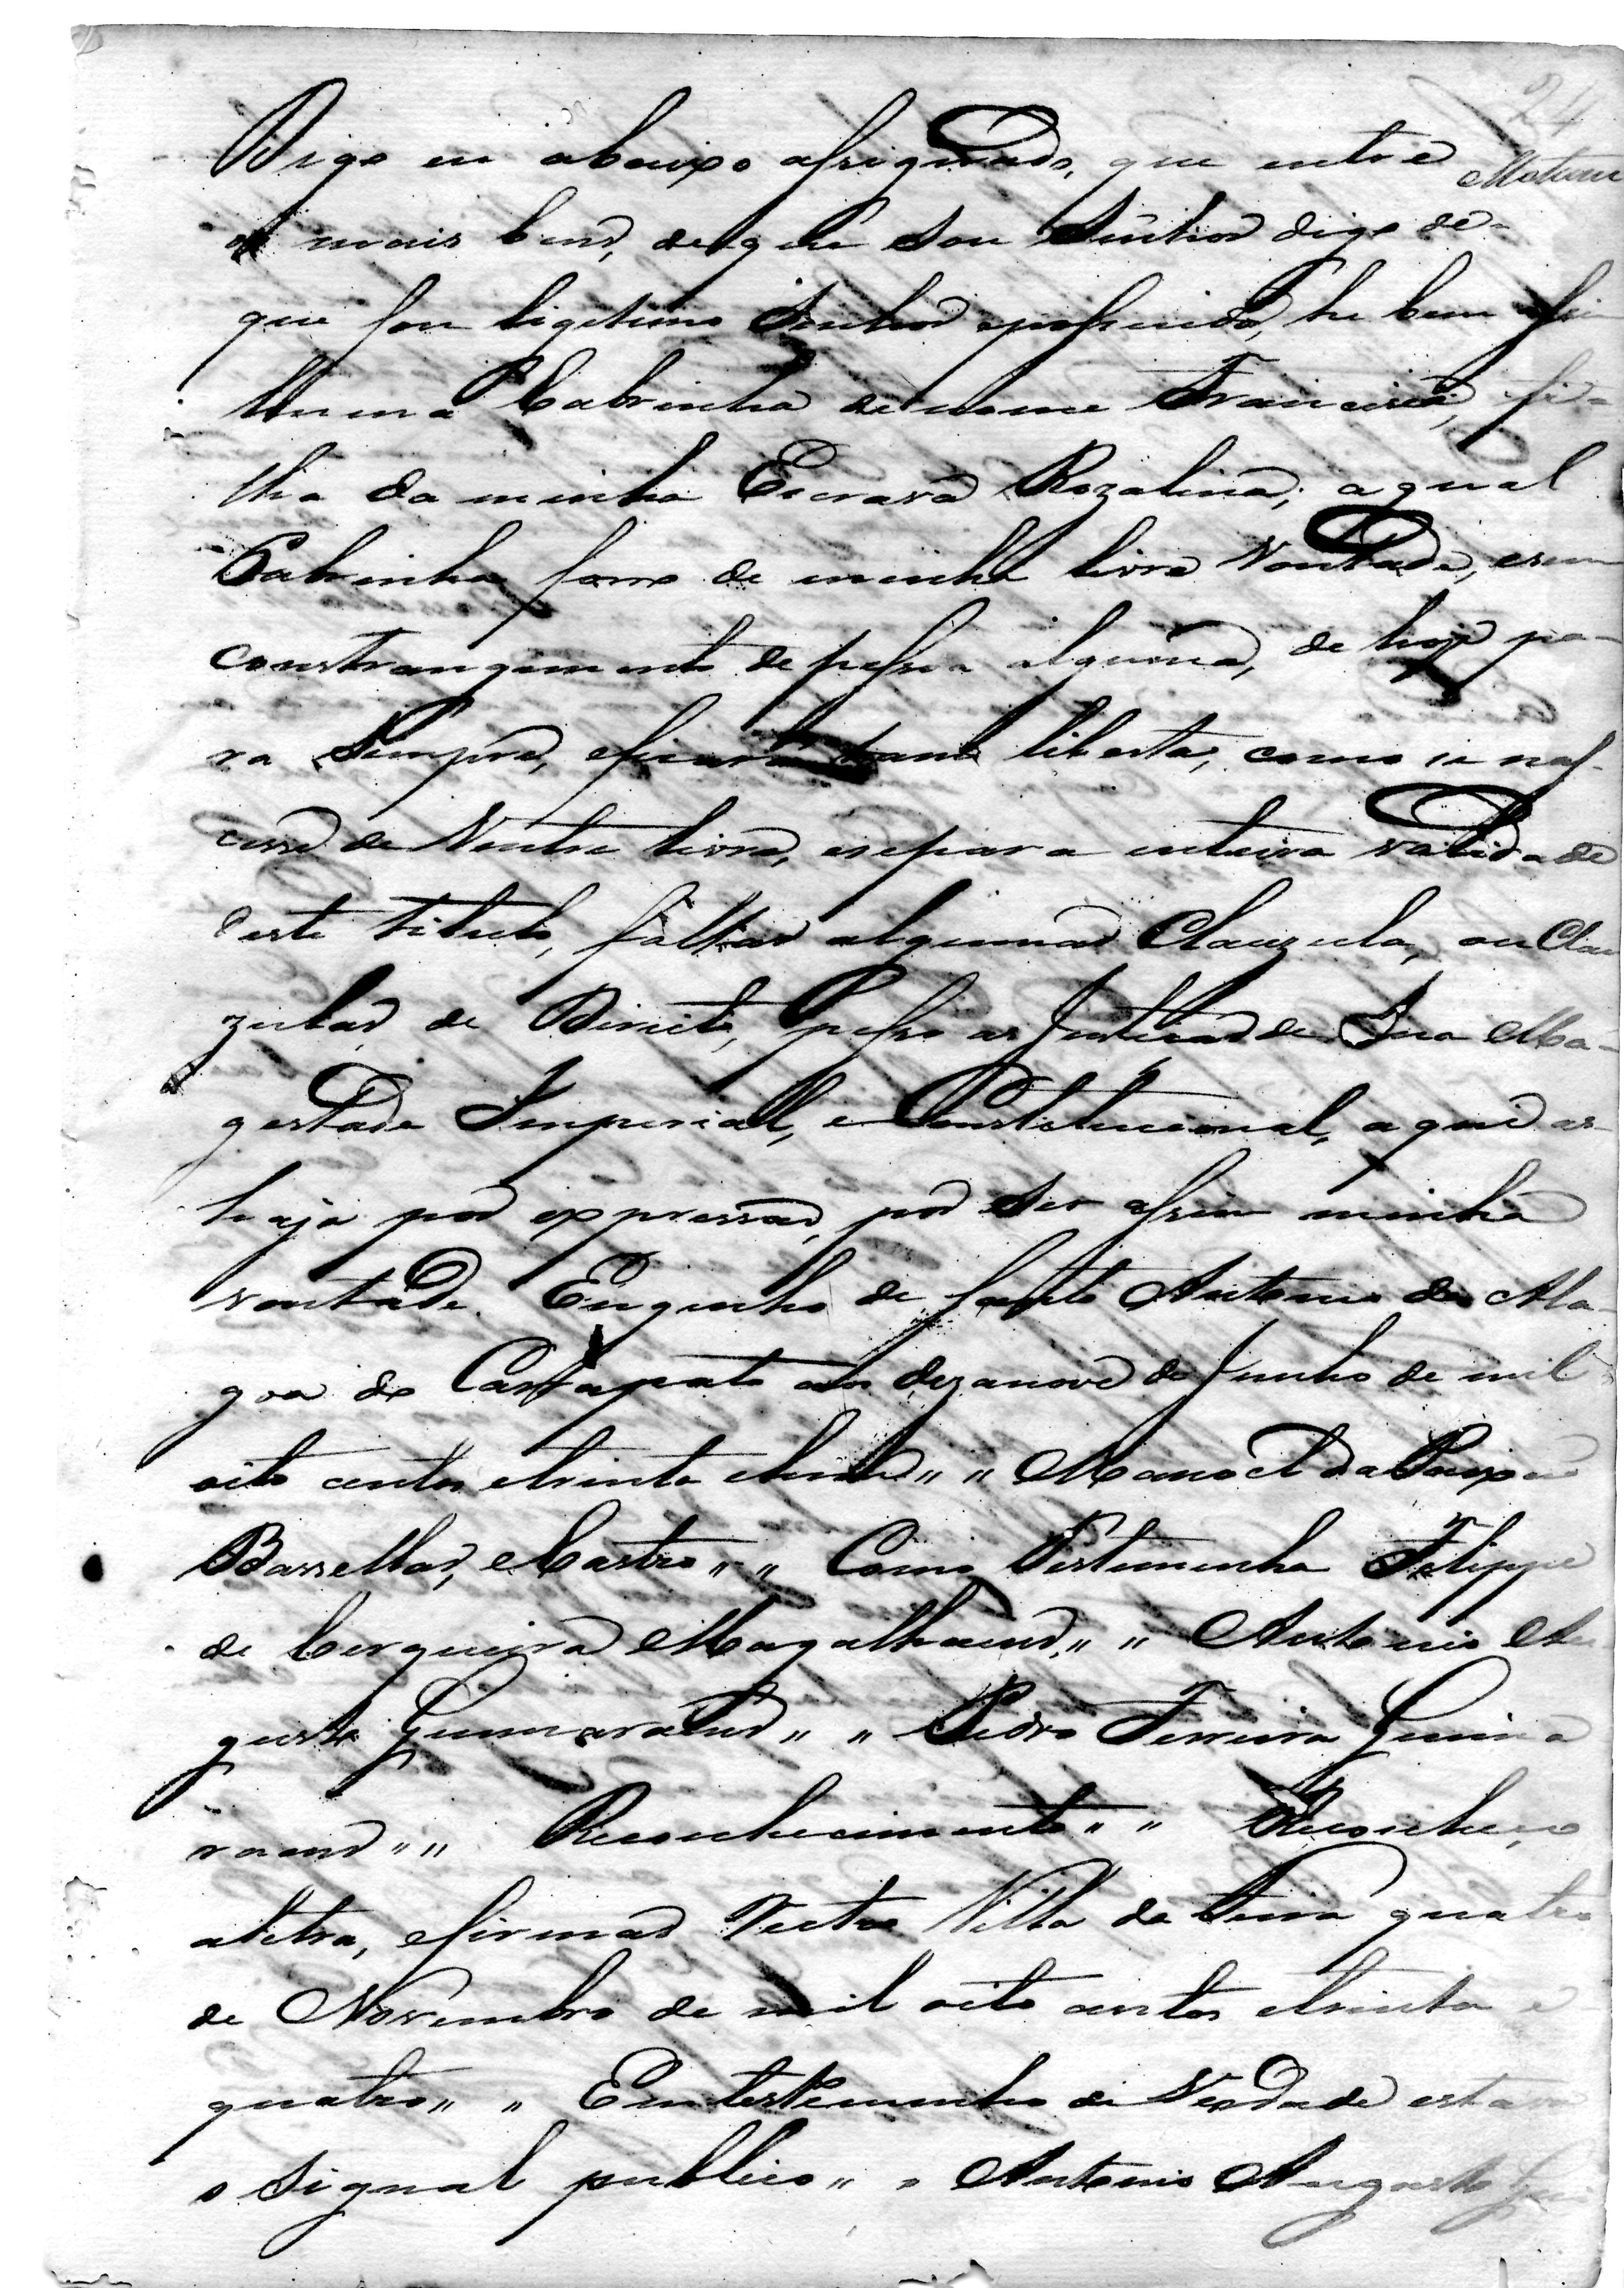 24
Digo eu abaixo assignado, que entre
os mais bens, de que sou Senhor digo de-
que sou ligitimo Senhor epossuidor, he bem assim
huma Cabrinha de nome Francisca, fi-
lha da minha Escrava Rozalina; a qual
Cabrinha forro de minha livre Vontade, e sem
constrangimento de pessoa alguma, de hoje pa-
ra Sempre, eficará liberta, como se nas-
cesse de Ventre livre, esepara inteira validade
deste titulo, faltar alguma Clauzula, ou Clau
zulas de Direito, pesso as Justicas de Sua Ma-
gestade Imperial, e Constitucional, a que as-
haja por expressas, por ser assim minha
vontade. Engenho de Santo Antonio da Ala-
goa do Carrapato aos dezanove de Junho de mil
oito centos etrinta e " " Manoel da Paixão
Barcellar, e Castro " " Como Testemunha Felippe
de Cerqueira Magalhaens " " Antonio Au
gusto Guimaraens " " Pedro Ferreira Guima
raens " " Reconhecimento " " Reconheço
aletra, efirmas Villa da Feira quatro
de Novembro de mil oito centos etrinta e
quatro " " Emtestemunho de Verdade estava
o Signal publico " " Antonio Augusto Gui